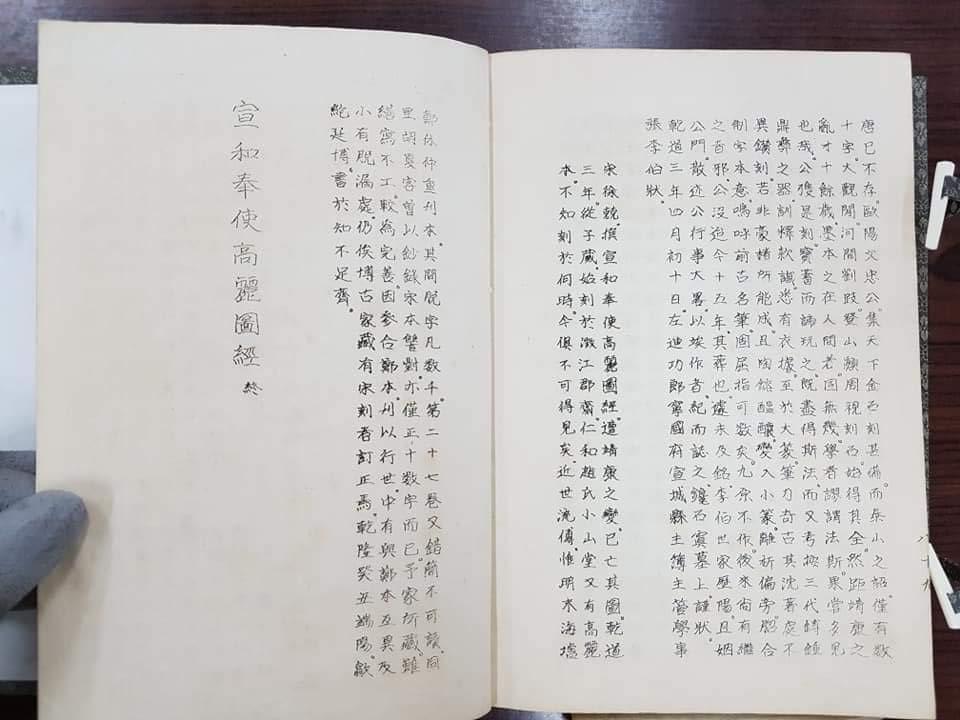 唐已不存。歐陽文忠公。集天下金石刻甚備。而泰山之詔。僅有數
十字。大觀間。河間劉跂登山。頫周視刻石。始得其全。然距靖康之
亂。才十餘歲。墨本之在人間者。固無幾。學者謬謂法斯。果當多見
也哉。公獲是刻。寶蓄而諦玩之。旣盡得斯法。而又考按三代時鍾
鼎彝之器。訓釋款識。悉有衣據。至於大篆。筆力奇古。其沈著處。不
異鑱刻。若非豪楮所能成。且陶鎔醞釀。變入小篆。雖析偏旁。脗合
制字本意。嗚呼。前古名筆。固屈指可數矣。九原不作。後來尚有繼
之者邪。公沒迨今十五年。其葬也。遽未及銘。李伯世家歷陽。且姻
公門。敢述公行事大畧。以埃作者。紀而誌之。鑱石窴墓上。謹狀。
乾道三年四月初十日。左迪功郎寧國府宣城縣主簿主管學事
張李伯狀。
宋徐兢撰宣和奉使高麗圖經。遭靖康之變。已亡其圖。乾道
三年。從子蕆。始刻於澂江郡齋。仁和趙氏小山堂。又有高麗
本。不知刻於何時。今俱不可得見矣。近世流傳。惟明末海壖
八十九
鄭休仲重刋本。其間脫字凡數千。第二十七卷。又錯簡不可讀。同
里胡夏客。曾以鈔錄宋本讐對。亦僅正十數字而已。予家所藏。雖
繕寫不工。較爲完善。因參合鄭本。刋以行世。中有與鄭本互異。及
小有脫漏處。仍俟博古家藏有宋刻者訂正焉。乾隆癸丑端陽。歙
鮑廷博書於知不足齋。
宣和奉使高麗圖經 終